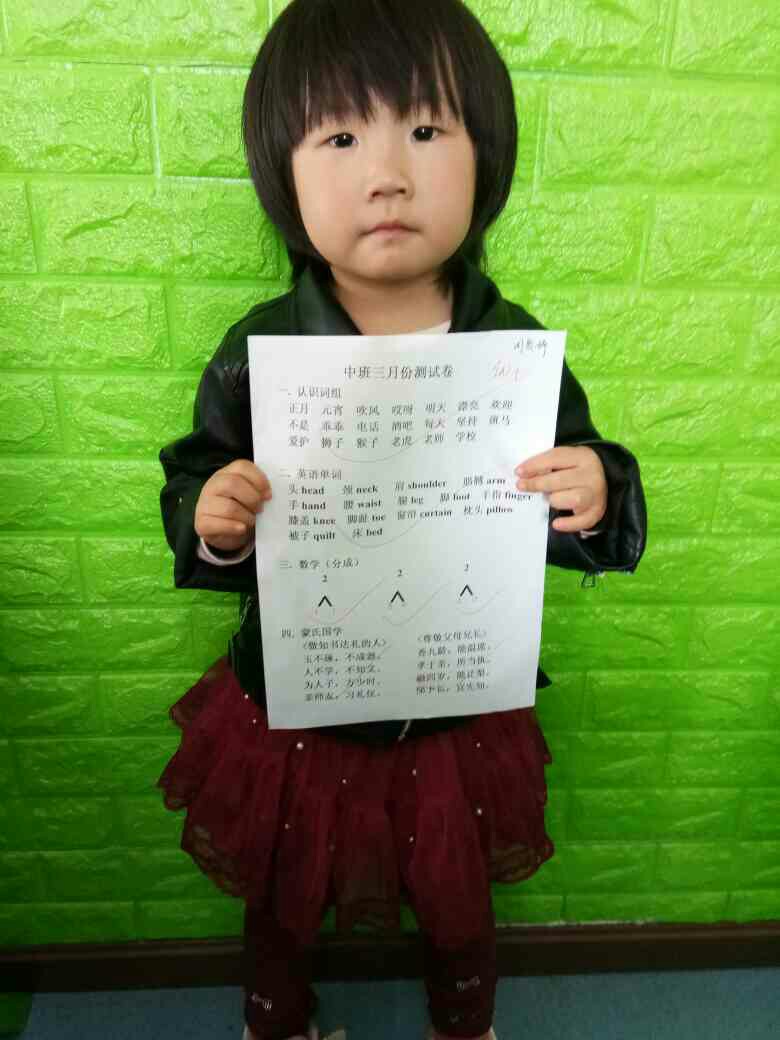 中班三月份测试卷
一、认识词组
正月 元宵 吹风 哎呀 明天 漂亮 欢迎
不是 乖乖 电话 酒吧 每天 坚持 斑马
爱护 狮子 猴子 老虎 老师 学校
二、英语单词
头 head 颈 neck 肩 shoulder 胳膊 arm
手 hand 腰 waist 腿 leg 脚 foot 手指 finger
膝盖 knee 脚趾 toe 窗帘 curtain 枕头 pillow
被子 quilt 床 bed
三、数学（分成）
2 2 2
四、蒙氏国学
（做知书达礼的人）
玉不琢，不成器。
人不学，不知义。
为人子，方少时。
亲师友，习礼仪。
（尊敬父母兄长）
香九龄，能温席。
孝于亲，所当执。
融四岁，能让梨。
弟于长，宜先知。